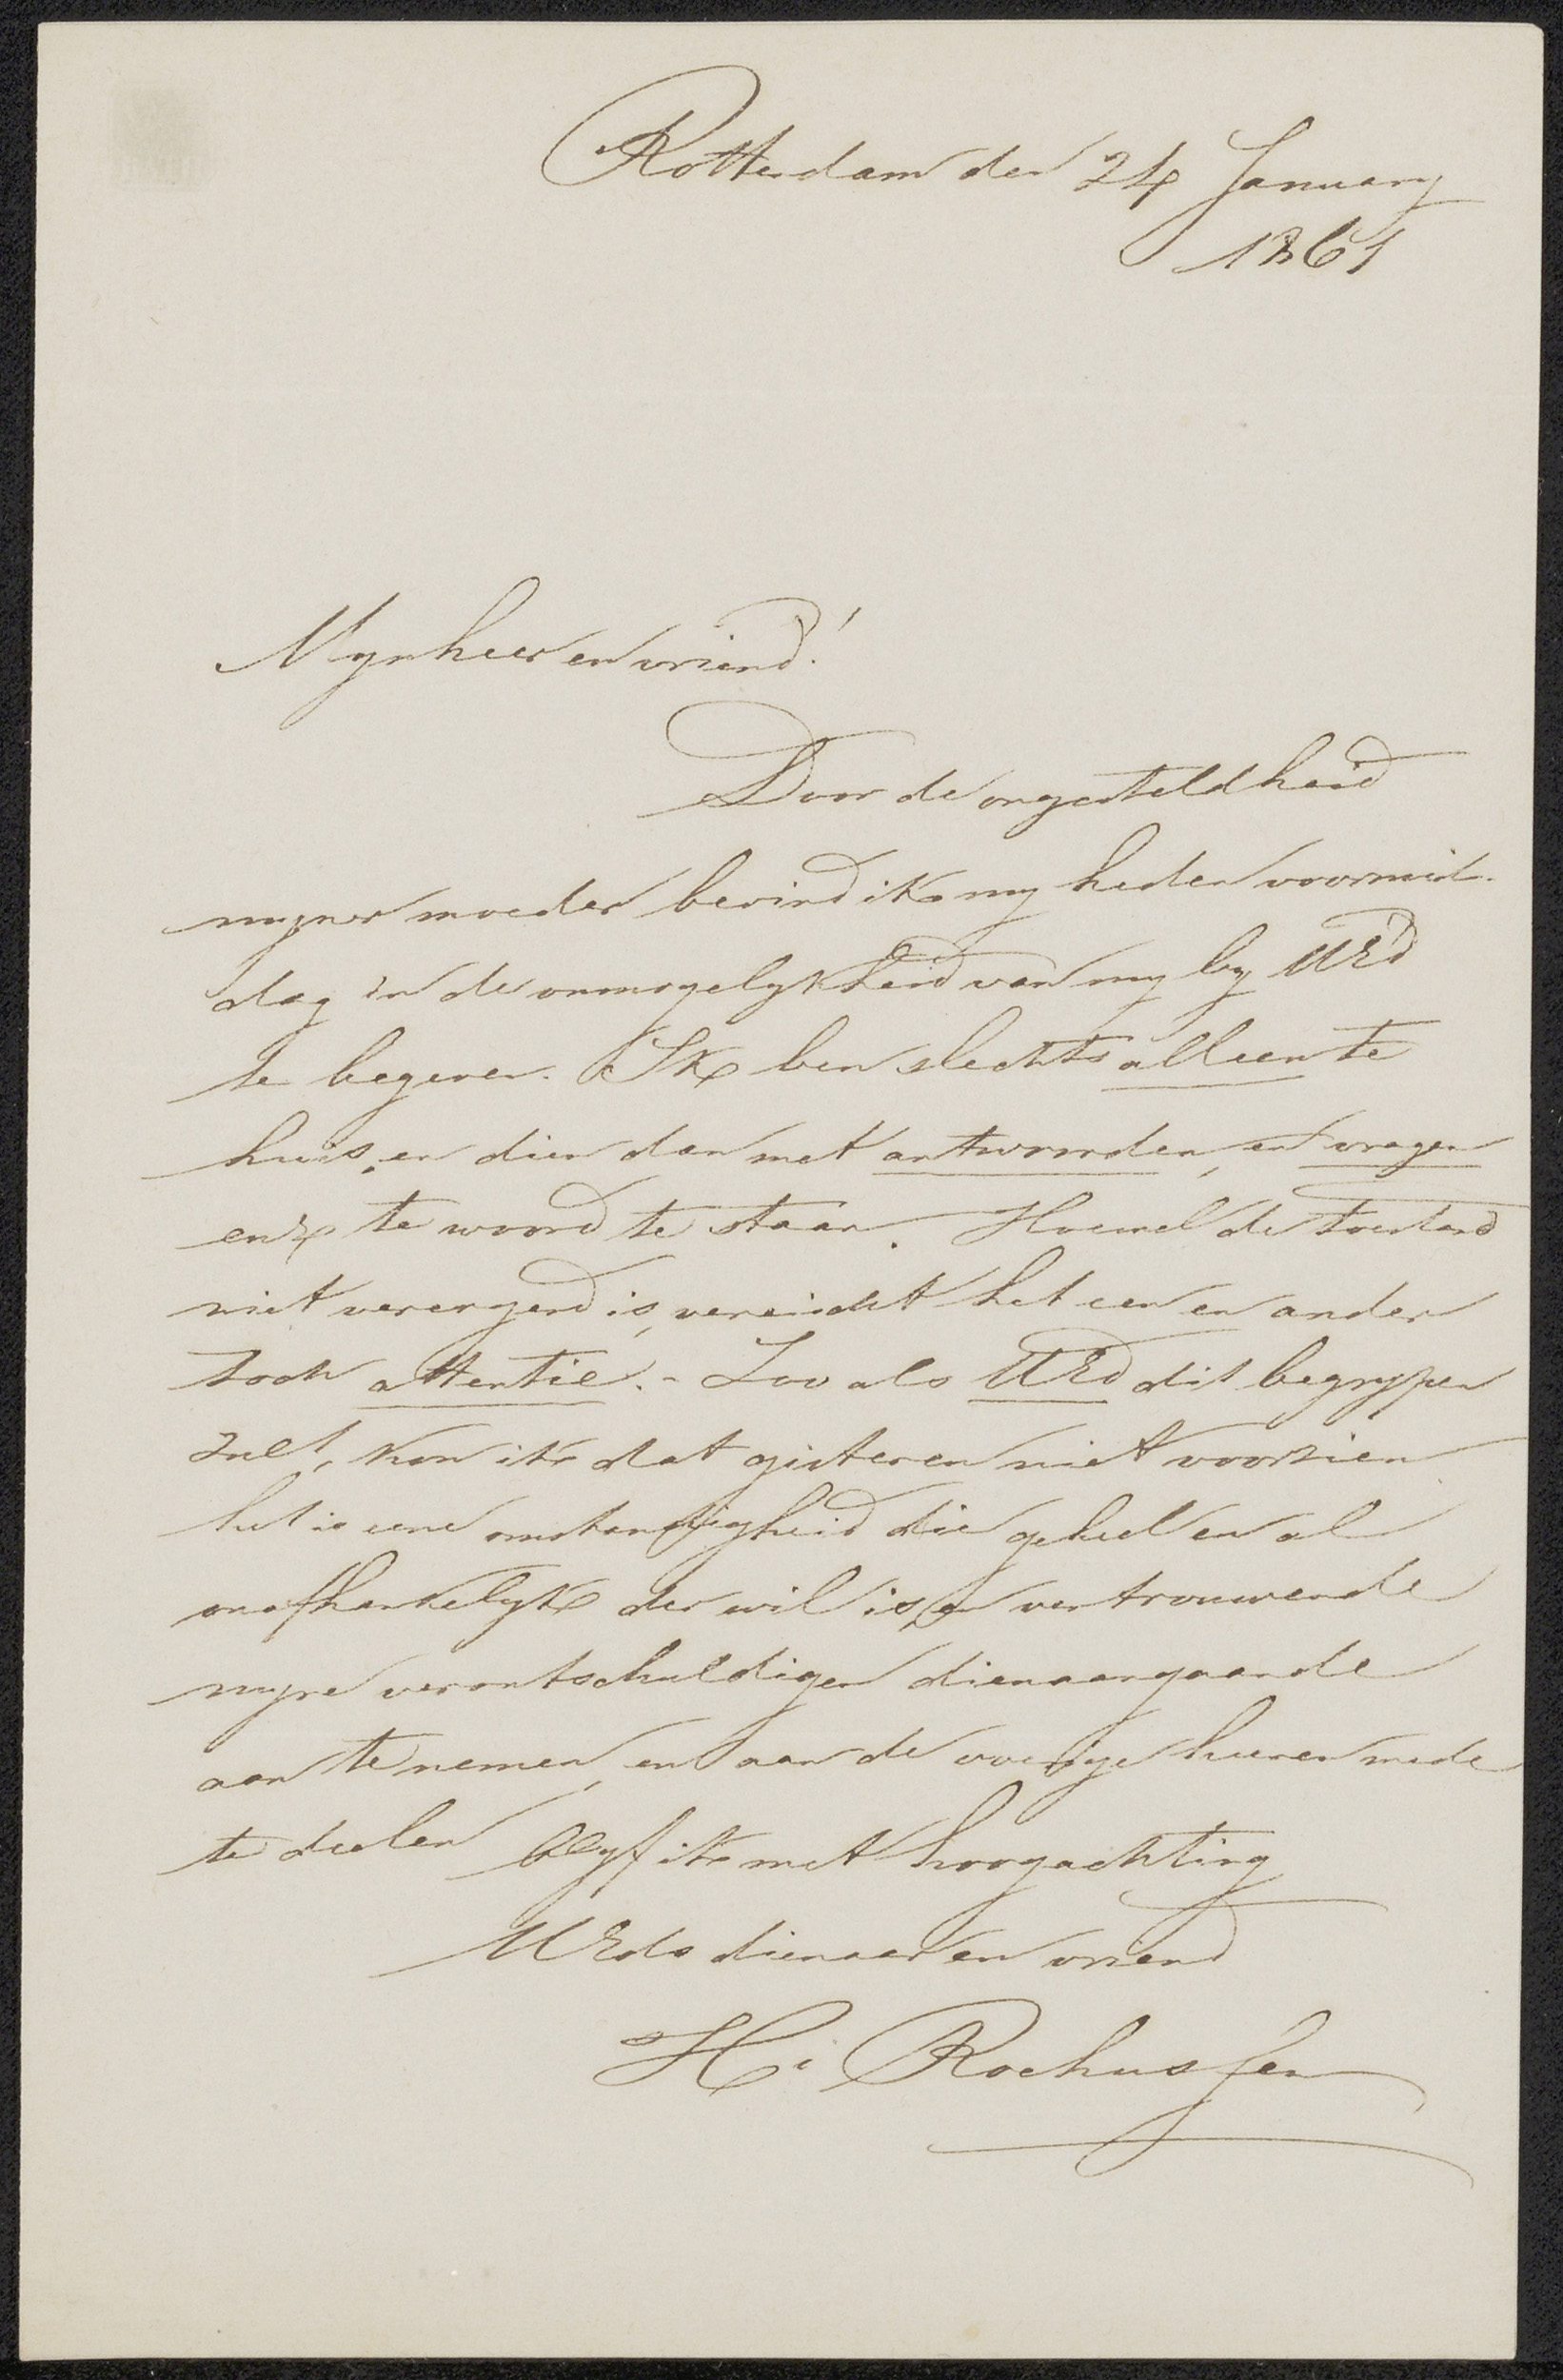 Rotterdam den 24 January
1861
Mynheer en vriend!
Door de ongesteldheid
mijner moeder bevind ik my heden voormid-
dag in de onmogelykheid van my by UEd
te begeven. Ik ben slechts alleen te
huis, en dien dan met antwoorden, en vragen
enz te woord te staan. Hoewel de toestand
niet verergerd is, vereischt het een en ander
toch attentie. - Zoo als UEd dit begrypen
zult, kon ik dat gisteren niet voorzien
het is eene omstandigheid die geheel en al
onafhankelyk der wil is, en vertrouwende
myne verontschuldigen dienaangaande
aan te nemen, en aan de overige heeren mede
te deelen blyf ik met hoogachting
UEds dienaar en vriend
H: Rochussen